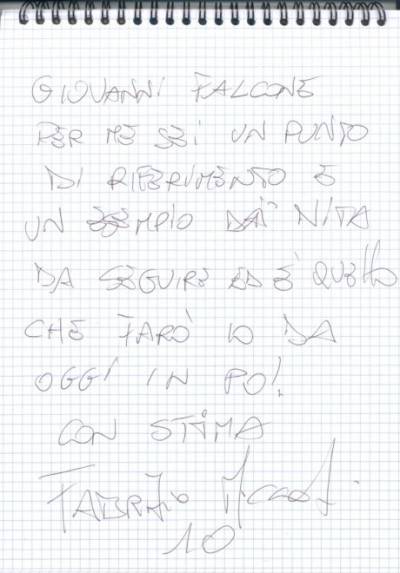 GIOVANNI FALCONE
PER ME SEI UN PUNTO
DI RIFERIMENTO E
UN ESEMPIO DA
DA SEGUIRE ED È QUELLO
CHE FARÒ IO DA
OGGI IN POI
CON STIMA
FABRIZIO
10